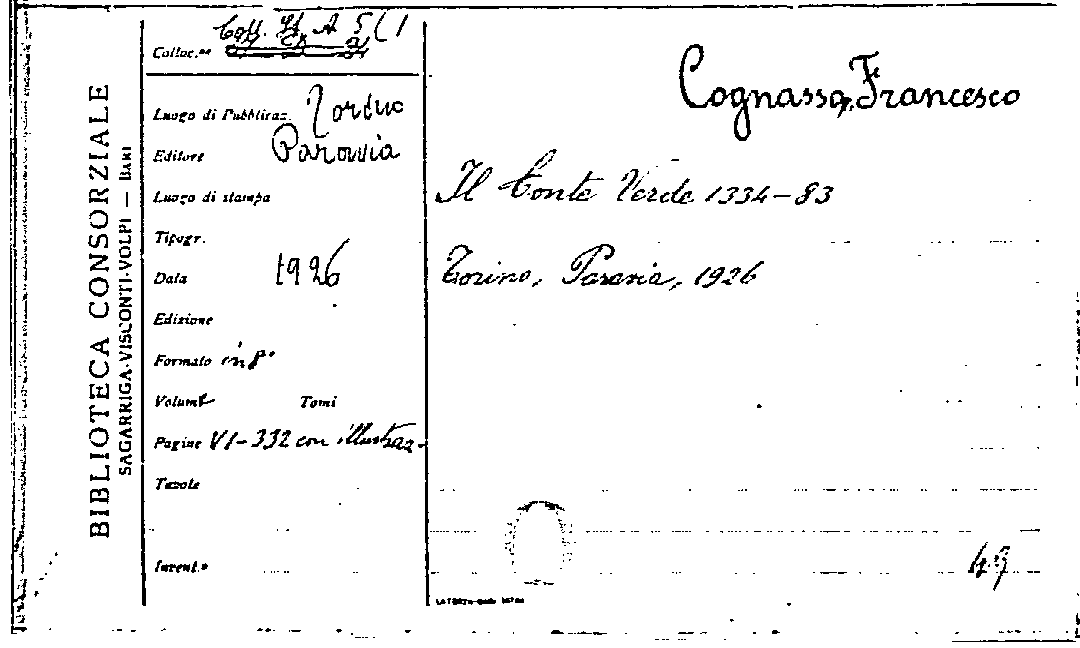 BIBLIOTECA CONSORZIALE
SAGARRIGA-VISCONTI-VOLPI — BARI
Colloc.ne
Luogo di Pubblicaz. Torino
Editore Paravia
Luogo di stampa
Tipogr.
Data 1926
Edizione
Formato in 8°
Volume Tomi
Pagine VI-332 con illustraz.
Tavole
Invent.°
Cognasso, Francesco
Il Conte Verde 1334-83
Torino, Paravia, 1926